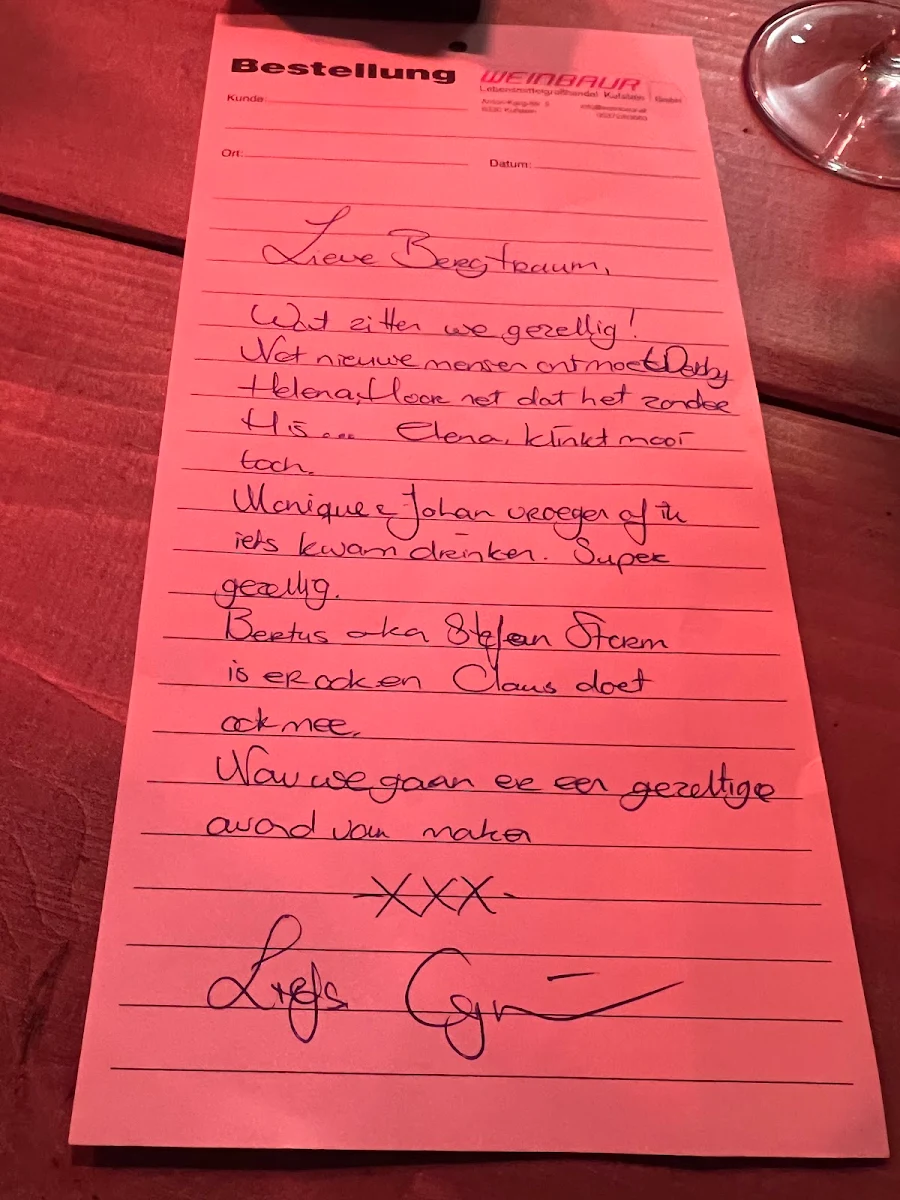 Bestellung
WEINBAUR
Lebensmittelgroßhandel Kufstein GmbH
Kunde:
Ort:
Datum:
Lieve Bergtraum,
Wat zitten we gezellig!
Net nieuwe mensen ontmoet Debby
Helena, Hoor net dat het zonder
H is... Elena, klinkt mooi
toch.
Monique & Johan vroegen of ik
iets kwam drinken. Super
gezellig.
Bertus aka Stefan Storm
is er ook en Claus doet
ook mee.
Nou we gaan er een gezellige
avond van maken
XXX
Liefs